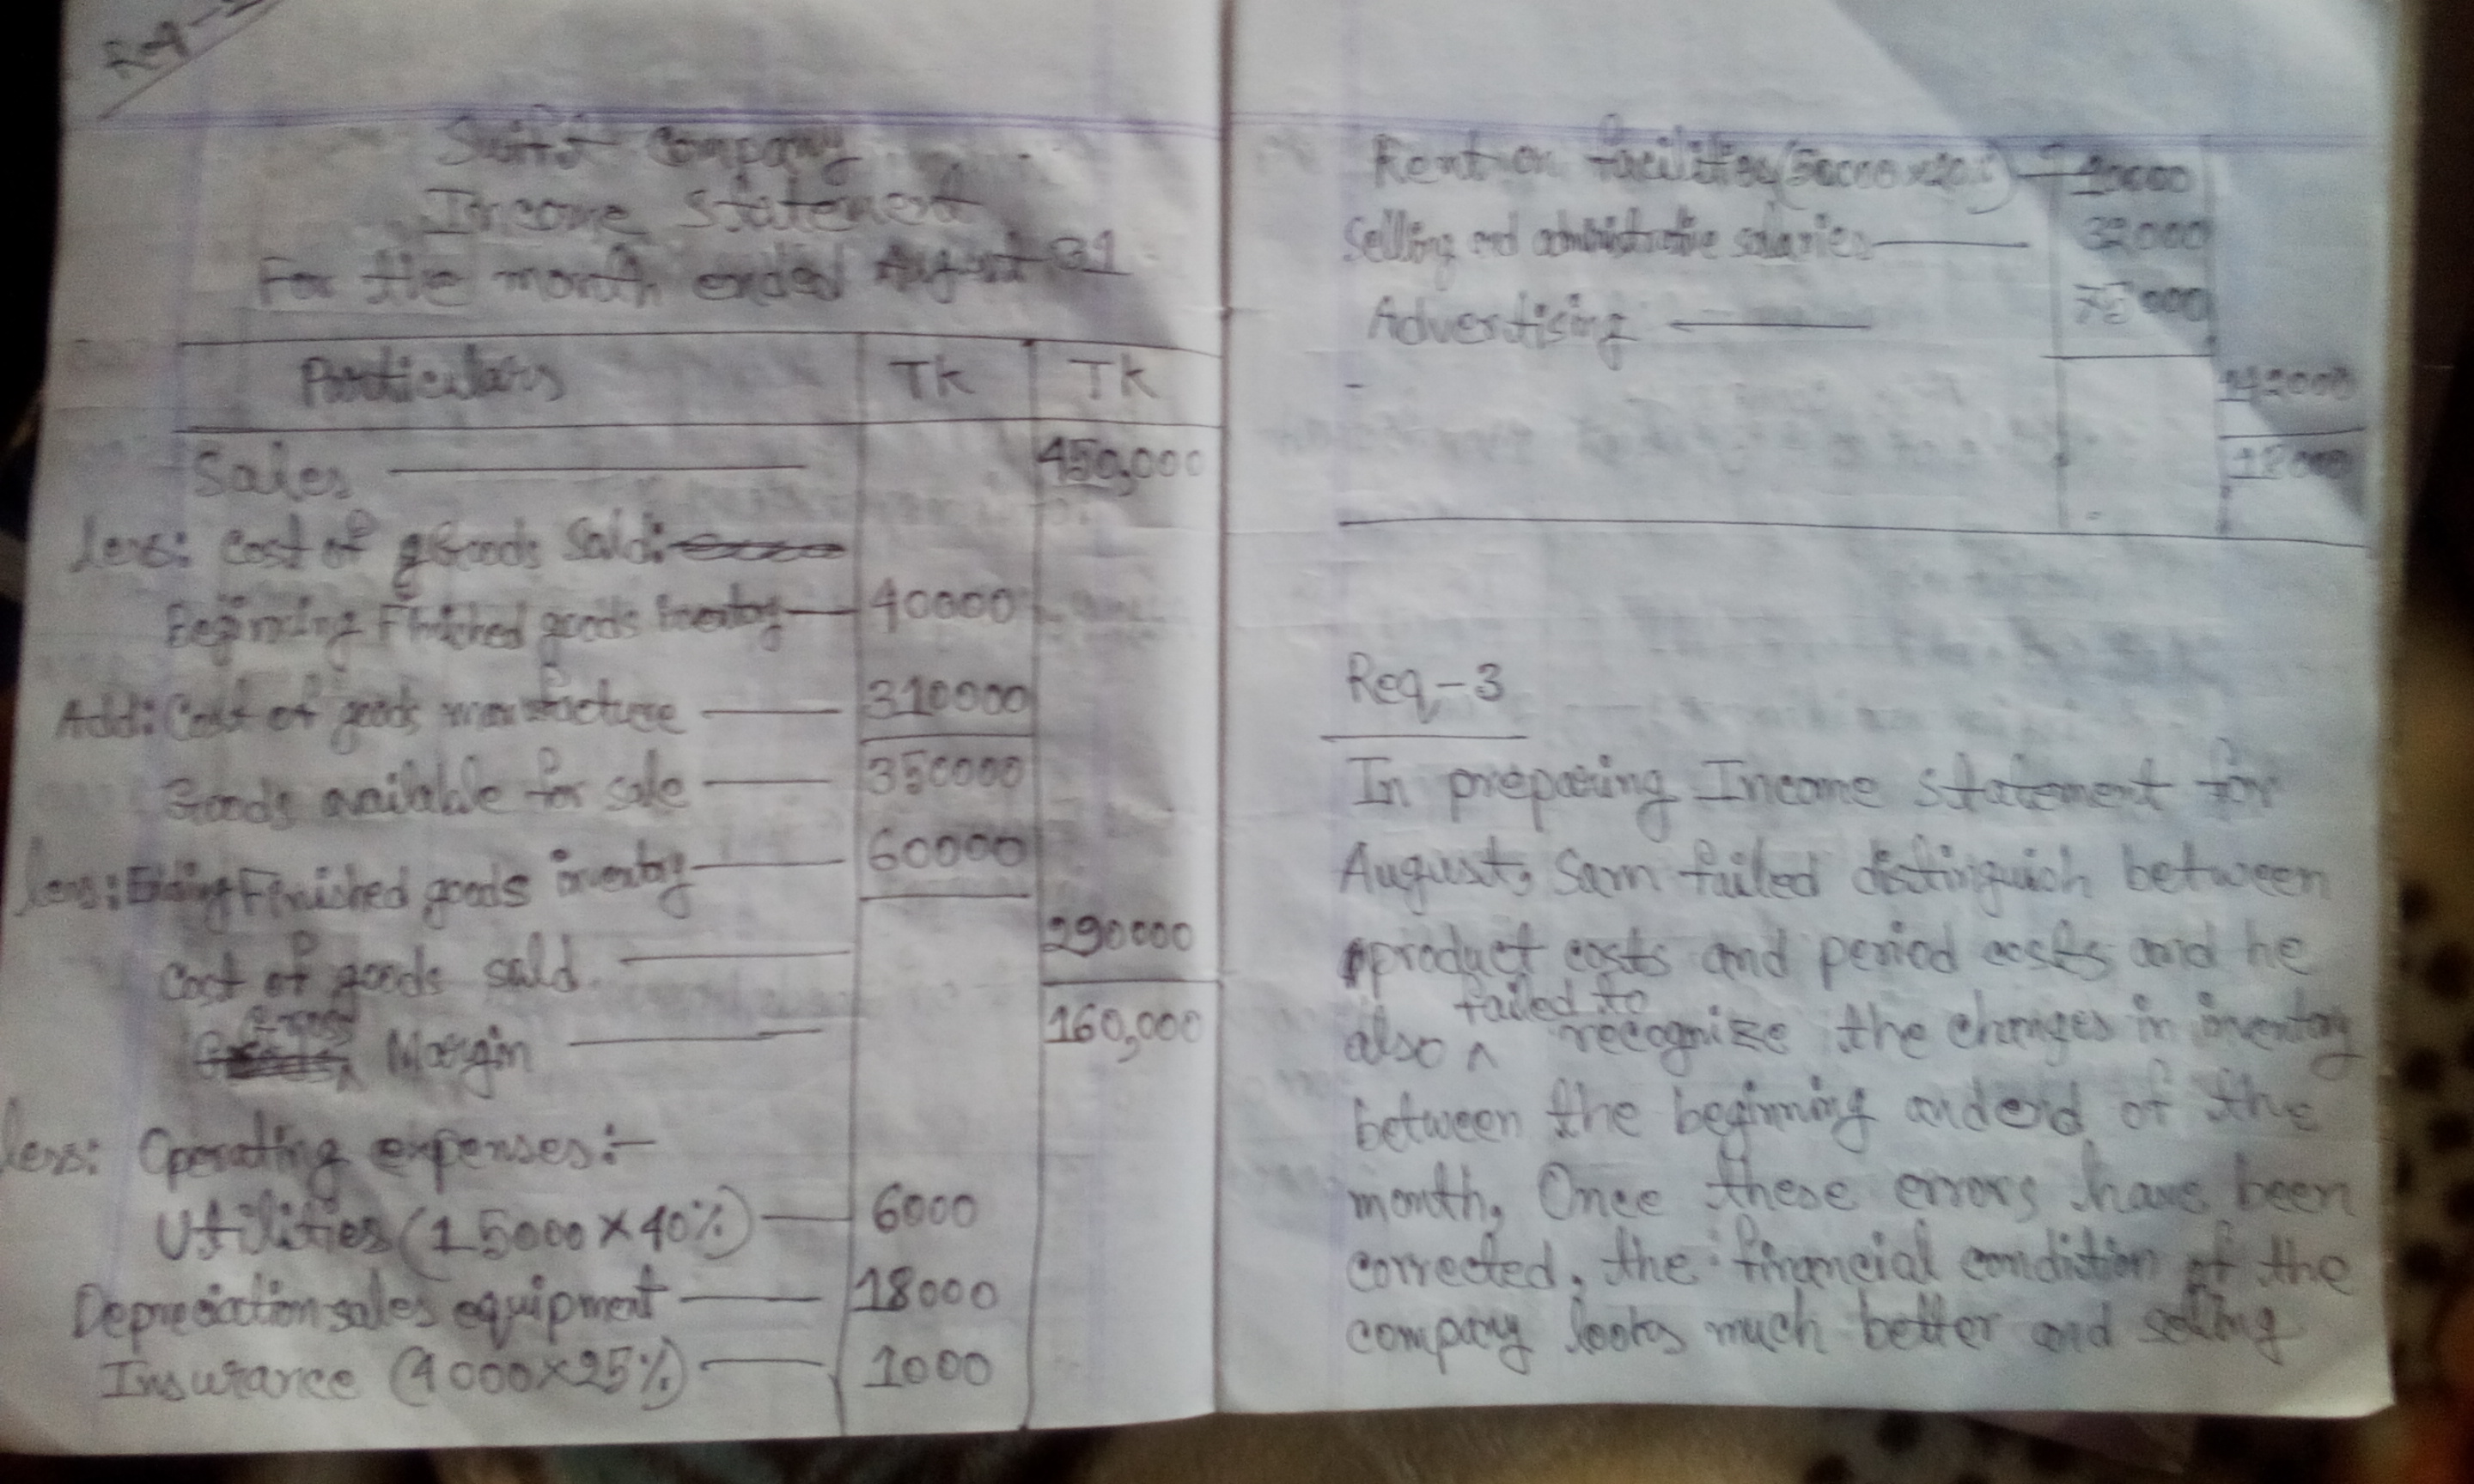 Req-
Swift Company
Income Statement
For the month ended August 31
Particulars TK TK
Sales 450,000
Less: Cost of goods Sold:
Beginning Finished goods inventory 40000
Add: Cost of goods manufacture 310000
Goods available for sale 350000
Less: Ending Finished goods inventory 60000
Cost of goods sold 290000
Gross Margin 160,000
Less: Operating expenses:-
Utilities (15000 × 40%) 6000
Depreciation sales equipment 18000
Insurance (4000×25%) 1000
Rent on facilities (50000 × 20%) 10000
Selling and administrative salaries 32000
Advertising 75000
142000
18000
Req-3
In preparing Income statement for
August, Sam failed distinguish between
product costs and period costs and he
also failed to recognize the changes in inventory
between the beginning and end of the
month, Once these errors have been
corrected, the financial condition of the
company looks much better and selling